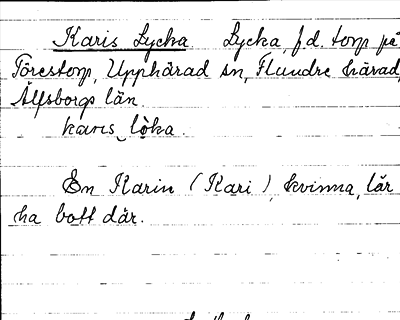 Karis Lycka Lycka, f.d. torp på
Torestorp, Upphärad sn, Flundre härad,
Älfsborgs län.
karis lø̀ka.
En Karin (Kari), kvinna, lär
ha bott där.